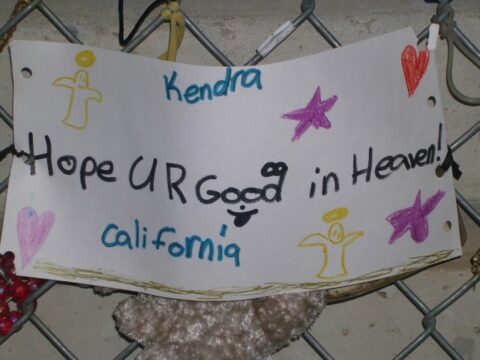 Kendra
Hope U R Good in Heaven!
California